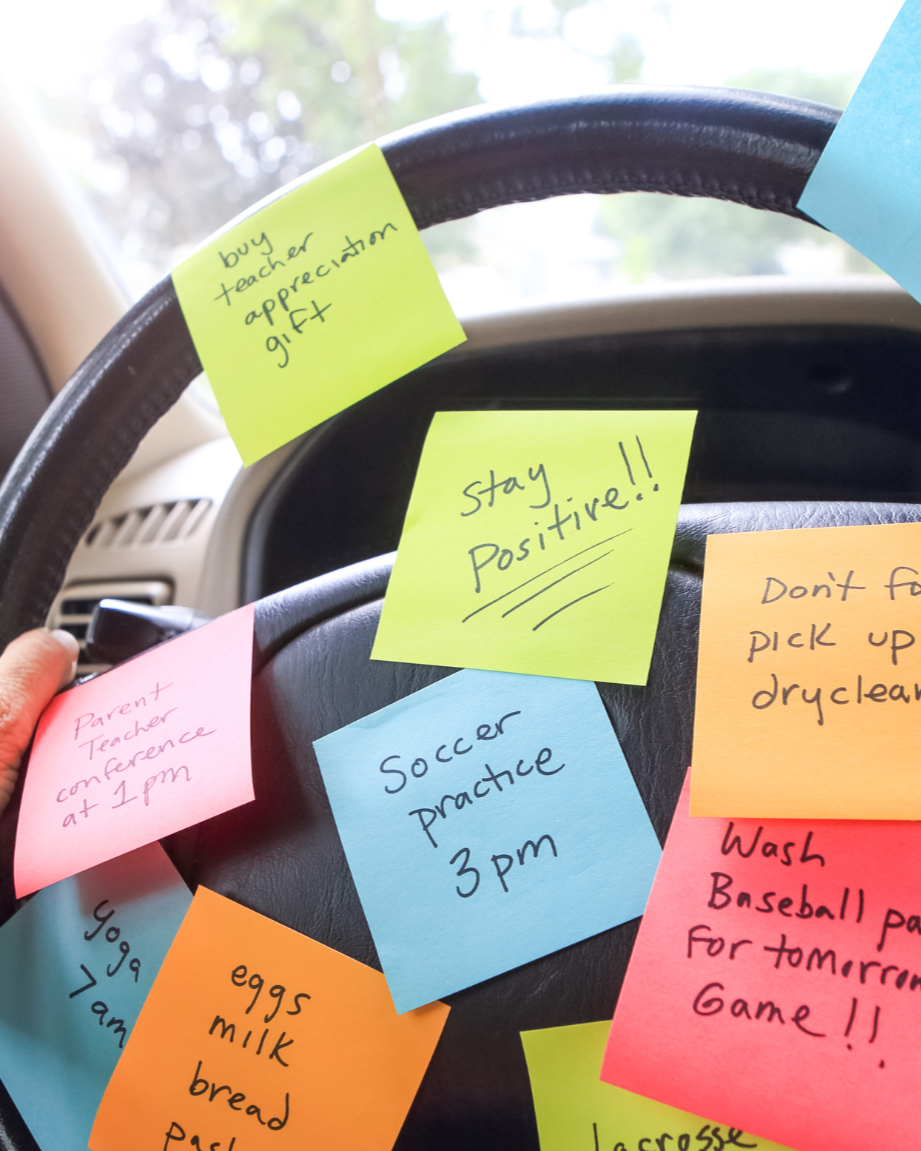 buy
teacher
appreciation
gift
Stay
Positive!!
Don't
pick up
Parent
Teacher
conference
at 1pm
Soccer
practice
3pm
Wash
Baseball
For tomorrow
Game!!
yoga
7am
eggs
milk
bread
lacrosse